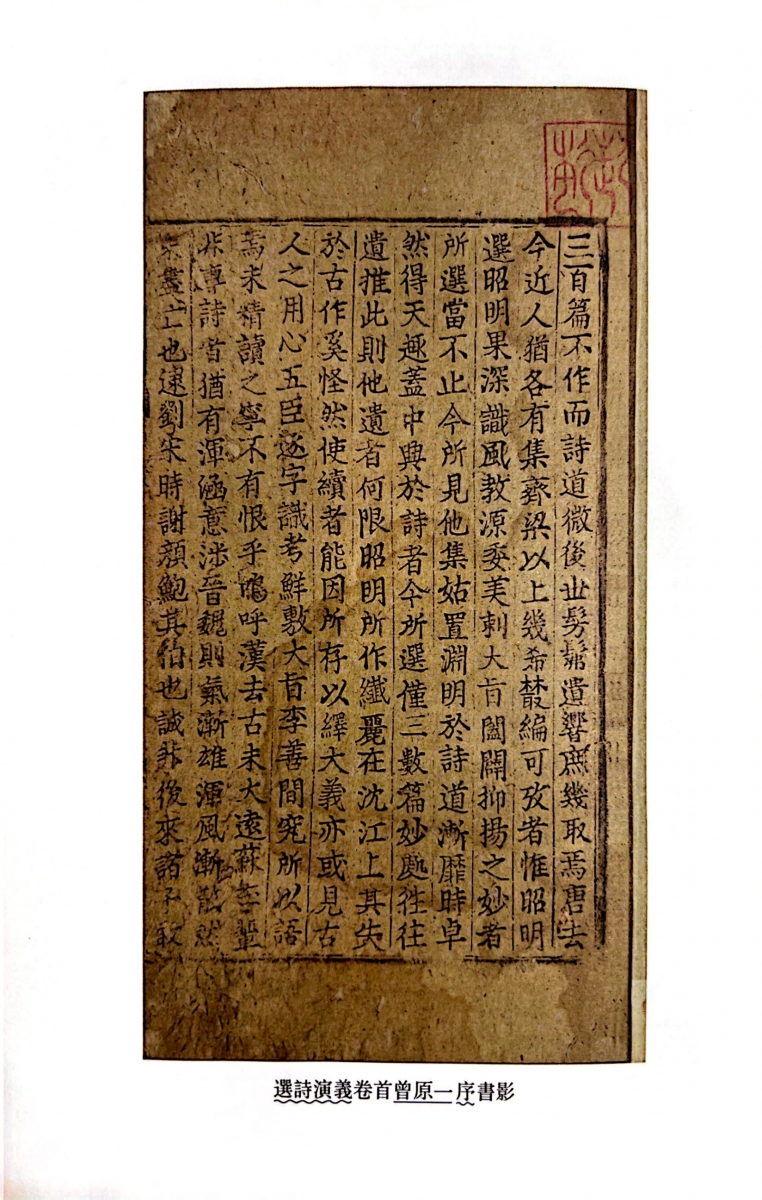 三百篇不作而詩道微後世髣髴遺響庶幾取焉唐去
今近人猶各有集齊梁以上幾希叢編可攷者惟昭明
選昭明果深識風教源委美刺大旨闔闢抑揚之妙者
所選當不止今所見他集姑置淵明於詩道漸靡時卓
然得天趣蓋中興於詩者今所選僅三數篇妙處徃徃
遺推此則他遺者何限昭明所作纖麗在沈江上其失
於古作奚怪然使續者能因所存以繹大義亦或見古
人之用心五臣逐字識考鮮敷大旨李善間究所以語
焉未精讀之寧不有恨乎嗚呼漢去古未大遠蘇李輩
非專詩者猶有渾涵意涉晉魏則氣漸雄渾風漸散然
未盡亡也逮劉宋時謝顏鮑其伯也誠非後來諸子敢
選詩演義卷首曾原一序書影